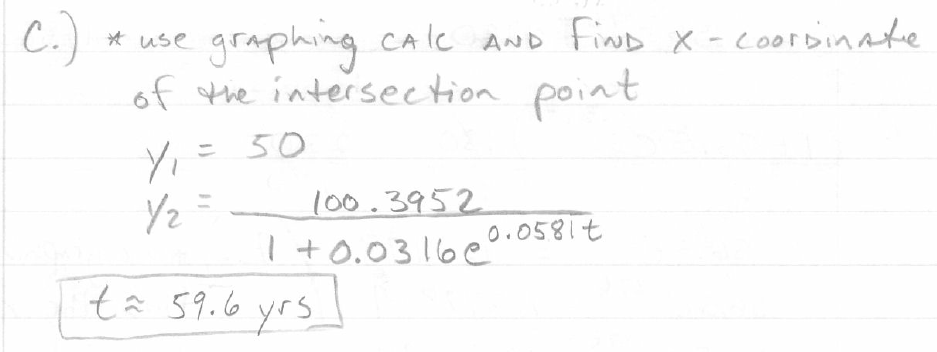 C.) * use graphing calc AND FIND x-coordinate
of the intersection point
y₁ = 50
y₂ = 100.3952 / 1 + 0.0316e^0.0581t
t ≈ 59.6 yrs